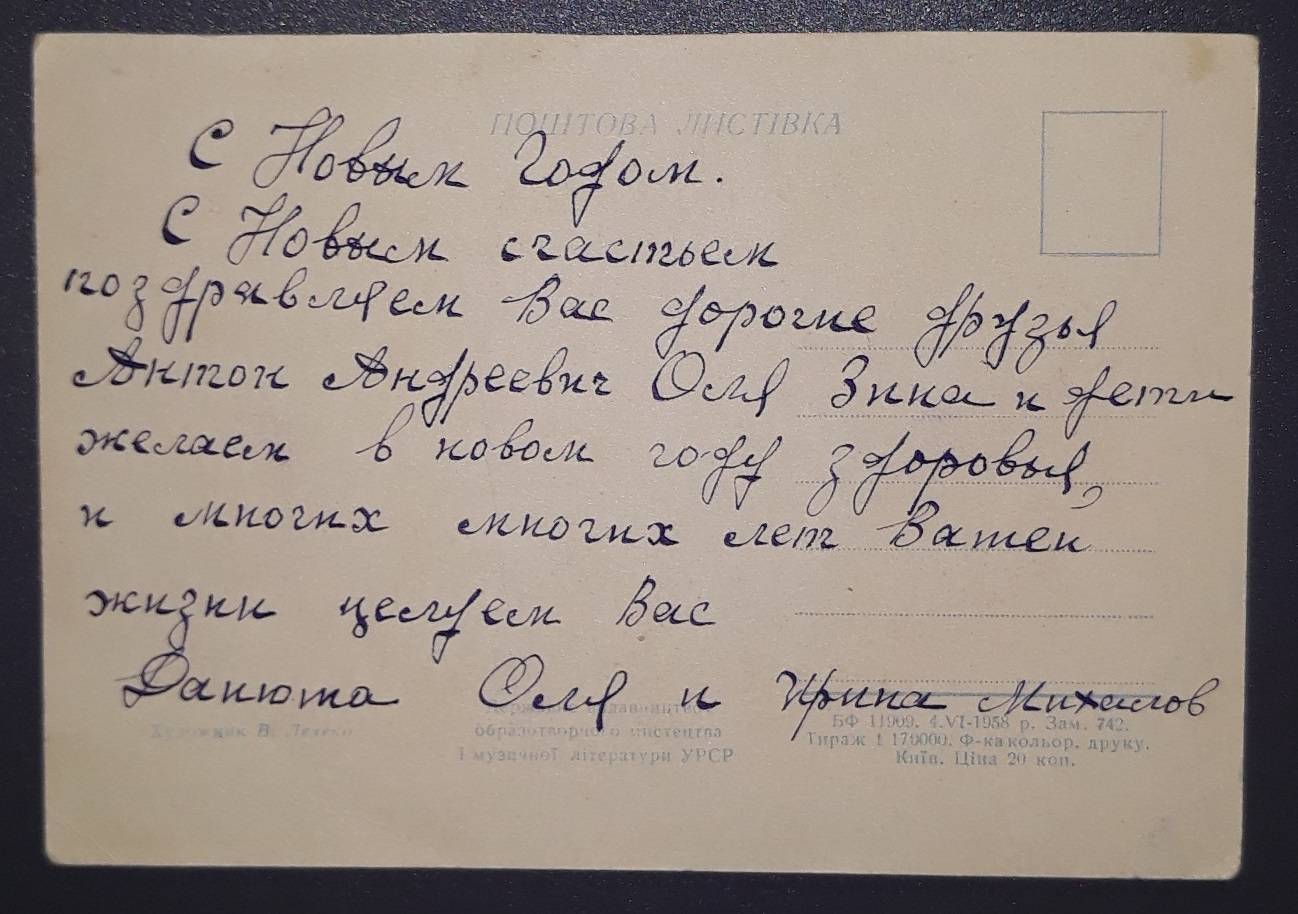 ПОШТОВА ЛИСТІВКА
С Новым Годом.
С Новым счастьем
поздравляем Вас дорогие друзья
Антон Андреевич Оля Зина и дети
желаем в новом году здоровья,
и многих многих лет Вашей
жизни целуем Вас
Данюта Оля и Ирина Михалов
Художник В.
Державне видавництво
образотворчого мистецтва
і музичної літератури УРСР
БФ 11909. 4.VI-1958 р. Зам. 742.
Тираж 1 170000. Ф-ка кольор. друку.
Київ. Ціна 20 коп.